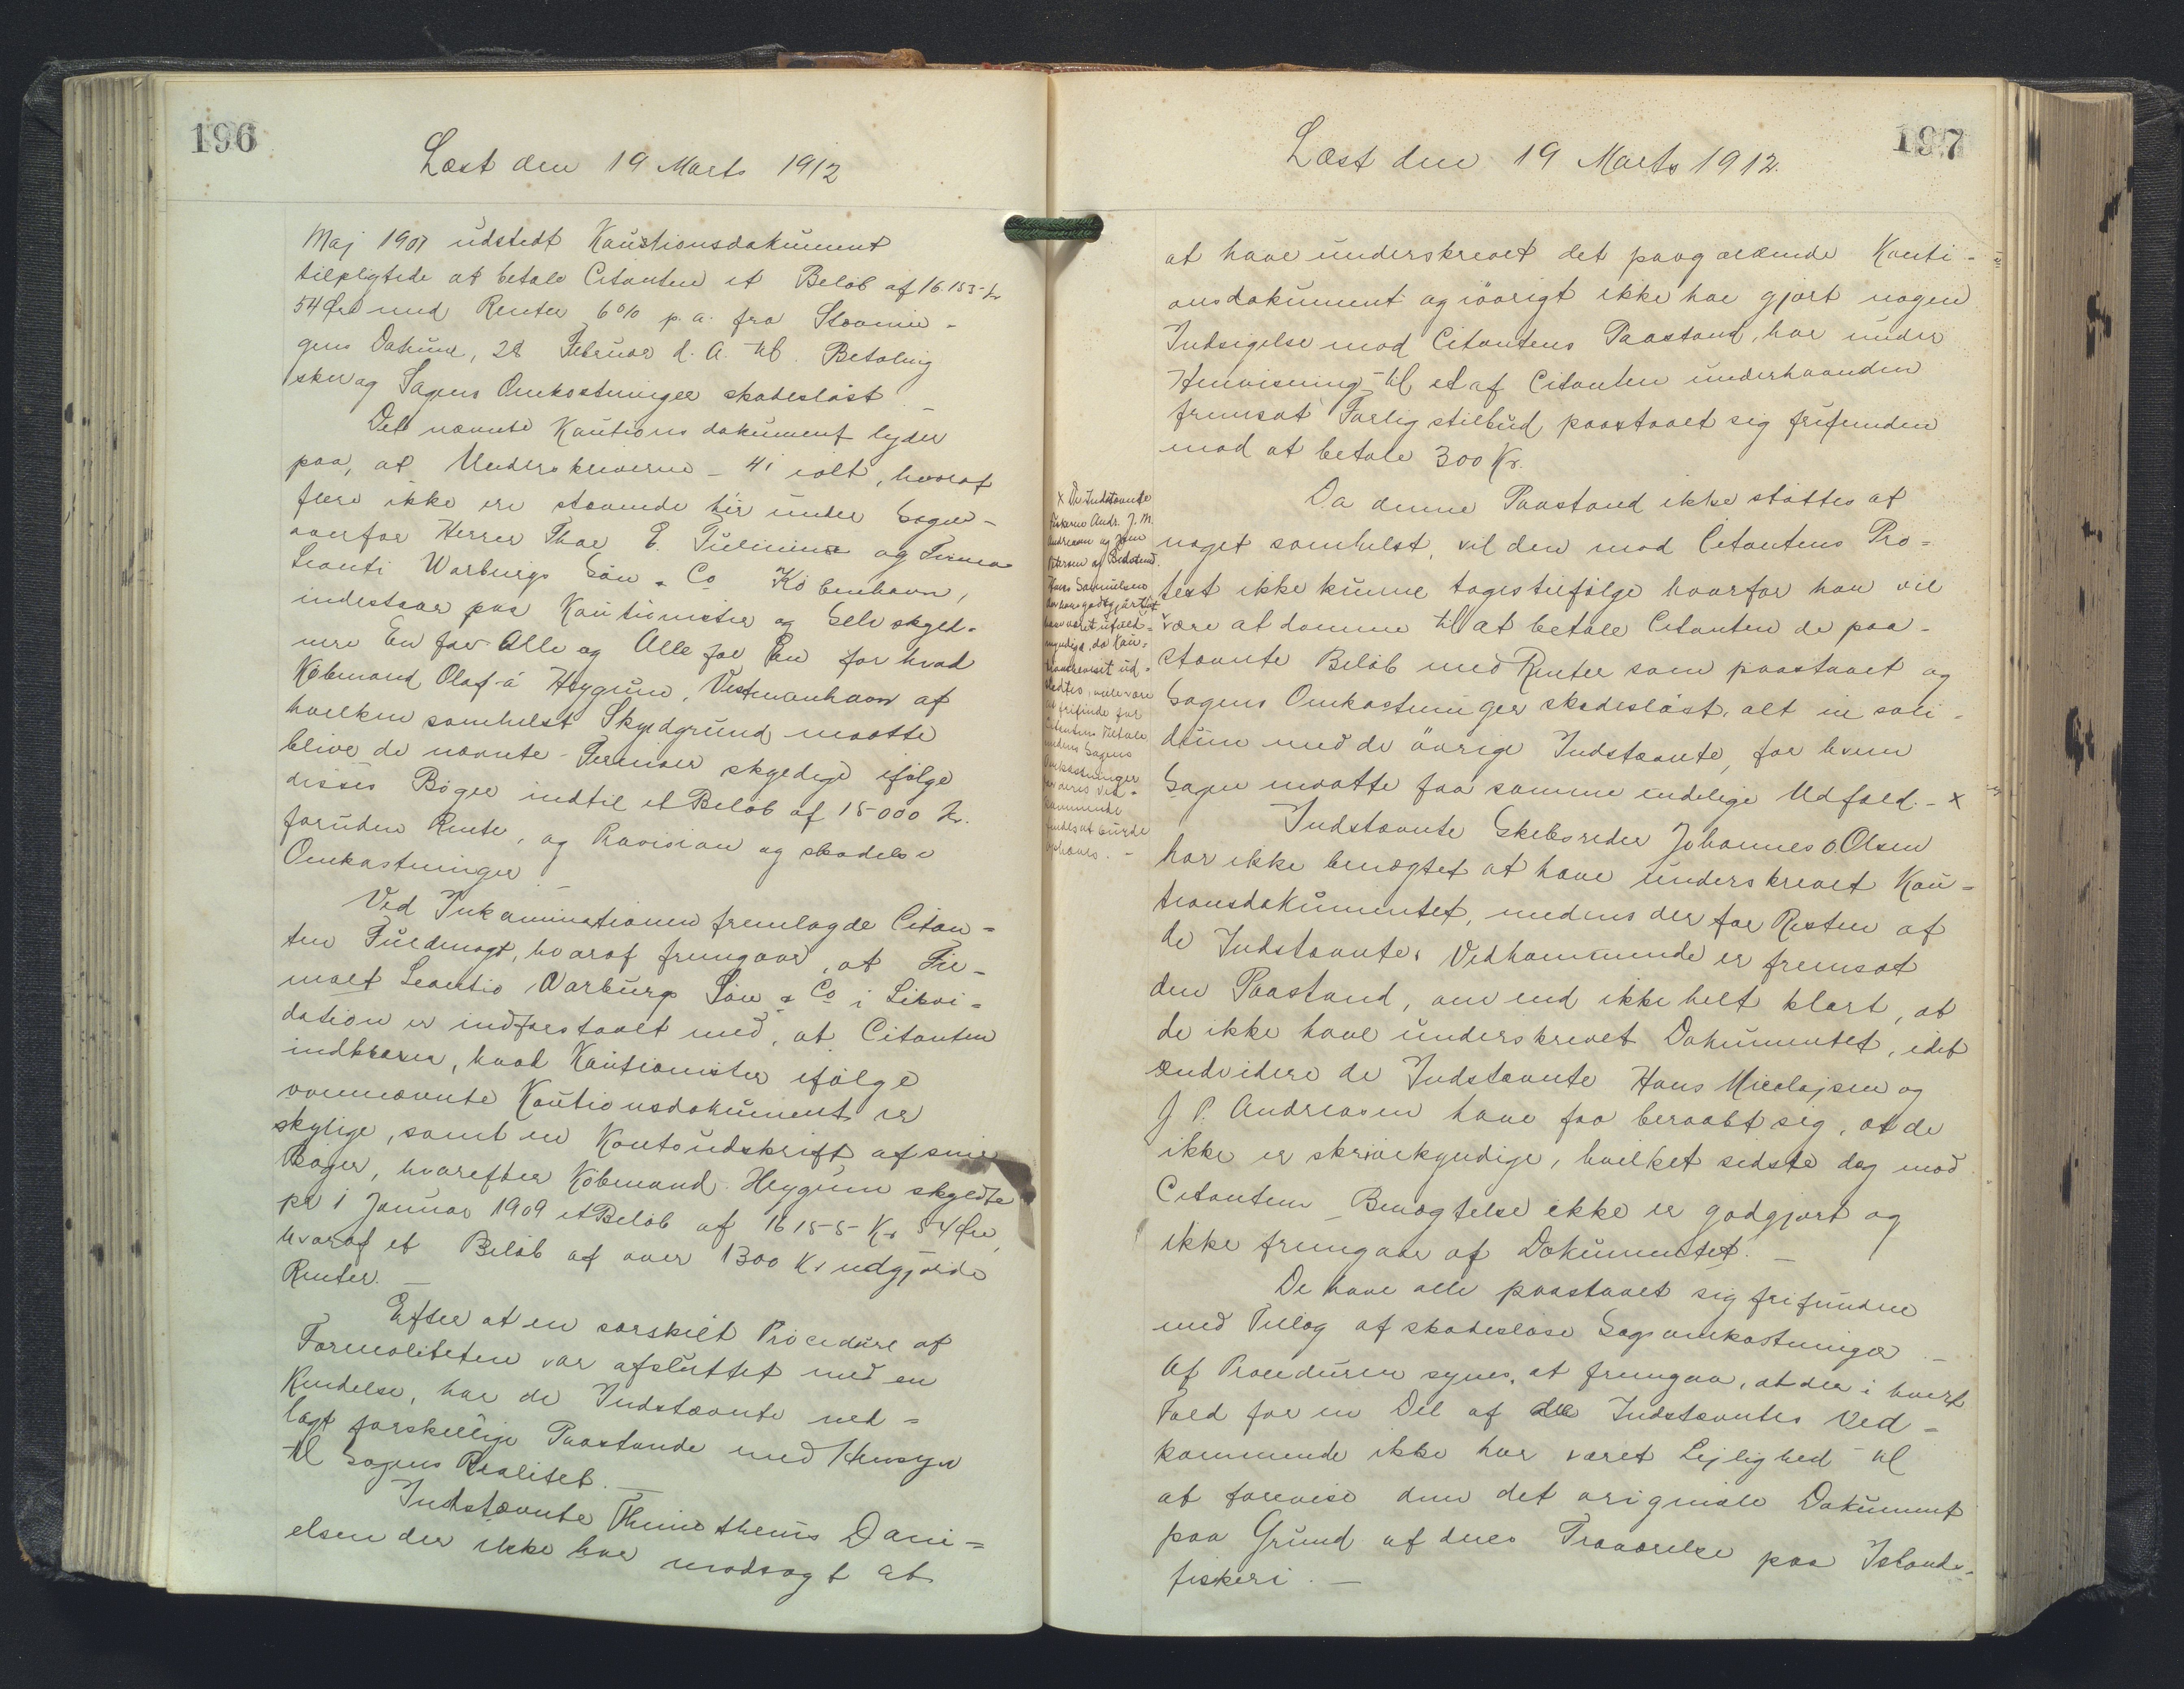 196
Læst den 19 Marts 1912
Maj 1907 udstedt Kautionsdokument
tilpligtede at betale Citanten et Beløb af 16.153 Kr
54 Øre med Renter 6% p.a. fra Stævnin-
gens Datum, 28 Februar d. A. til Betaling
sker og Sagens Omkostninger skadesløst. -
Det nævnte Kautionsdokument lyder
paa, at Underskriverne - 41 ialt, hvoraf
flere ikke ere stævnede her under Sagen -
overfor Herrer Thor E. Tulinius og Firma
Leonti Warburgs Søn & Co København,
indestaar paa Kautionister og Selvskyld-
nere En for Alle og Alle for En for hvad
Købmand Olaf á Heygum, Vestmanhavn af
hvilken somhelst Skyldgrund maatte
blive de nævnte Firmaer skyldige ifølge
disses Bøger indtil et Beløb af 15000 Kr.
foruden Rente, og Provision og skadesl
Omkostninger. -
Ved Inkaminationen fremlagde Citan-
ten Fuldmagt, hvoraf fremgaar, at Fir-
maet Leontio Warburgs Søn & Co i Likvi-
dation er indforstaaet med, at Citanten
indkræver, hvad Kautionister ifølge
ovennævnte Kautionsdokument er
skylige, samt en Kontoudskrift af sine
Bøger, hvorefter Købmand Heygum skyldte
pr 1 Januar 1909 et Beløb af 16155 Kr 54 Øre,
hvoraf et Beløb af over 1300 Kr udgjorde
Renter. -
Efter at en særskilt Procedure af
Formaliteten var afsluttet med en
Kendelse, har de Indstævnte ned-
lagt forskellige Paastande med Hensyn
til Sagens Realitet. -
Indstævnte Thimotheus Dani-
elsen der ikke har modsagt at
197
Læst den 19 Marts 1912.
at have underskrevet det paagældende Kauti-
onsdokument og iøvrigt ikke har gjort nogen
Indsigelse mod Citantens Paastand, har under
Henvisning til et af Citanten underhaanden
fremsat Forligstilbud paastaaet sig frifunden
mod at betale 300 Kr.
Da denne Paastand ikke støttes af
noget somhelst, vil den mod Citantens Pro-
test ikke kunne tages tilfølge hvorfor han vil
være at dømme til at betale Citanten de paa-
stævnte Beløb med Renter som paastaaet og
Sagens Omkostninger skadesløst, alt in soli-
dum med de øvrige Indstævnte, for hvem
Sagen maatte faa samme endelige Udfald. - x
x De Indstævnte
Andr. J. M.
Andreasen og Joen
Petersen af
Hans Samuelsen
der have godtgjort at
have været umyn-
dige, da Kau-
tionsbeviset ud-
stedtes, ville være
at frifinde for
Citantens Tiltale
medens Sagens
Omkostninger
for deres Ved-
kommende
findes at burde
ophæves. -
Indstævnte Skibsreder Johannes o. Olsen
har ikke benægtet at have underskrevet Kau-
tionsdokumentet, medens der for Resten af
de Indstævntes Vedkommende er fremsat
den Paastand, om end ikke helt klart, at
de ikke have underskrevet Dokumentet, idet
endvidere de Indstævnte Hans Nicolajsen og
J P. Andreasen have paa beraabt sig, at de
ikke er skrivekyndige, hvilket sidste dog mod
Citantens Benægtelse ikke er godgjort og
ikke fremgaar af Dokumentet. -
De have alle paastaaet sig frifundne
med Tillæg af skadesløse Sagsomkostninger -
Af Proceduren synes, at fremgaa, at der i hvert
Fald for en Del af de Indstævntes Ved-
kommende ikke har været Lejlighed til
at forevise dem det originale Dokument
paa Grund af deres Fraværelse paa Islands-
fiskeri. -